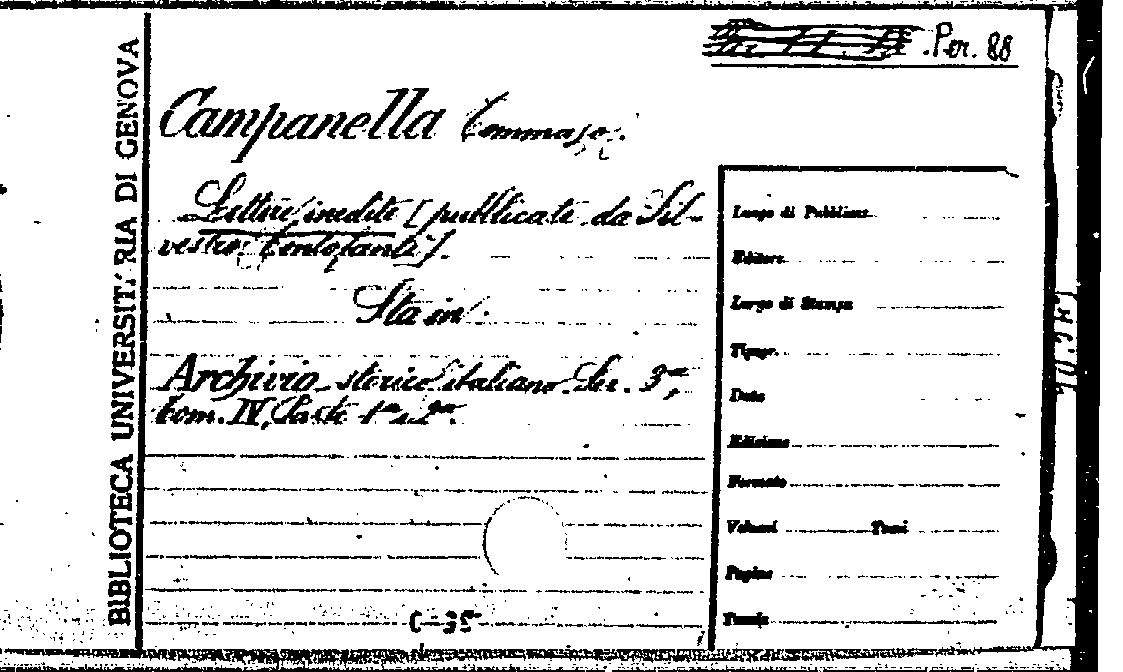 Per. 88
BIBLIOTECA UNIVERSITARIA DI GENOVA
Campanella Tommaso.
Lettere inedite [pubblicate da Sil-
vestro Centofanti].
Sta in:
Archivio storico italiano Ser. 3ª,
tom. IV, Parte 1ª e 2ª.
Luogo di Pubblicaz.
Editore
Luogo di Stampa
Tipogr.
Data
Edizione
Formato
Volumi Tomi
Pagine
Tavole
C-35